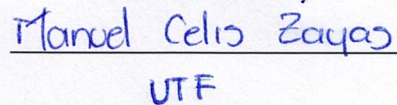 Manuel Celis Zayas
UTF